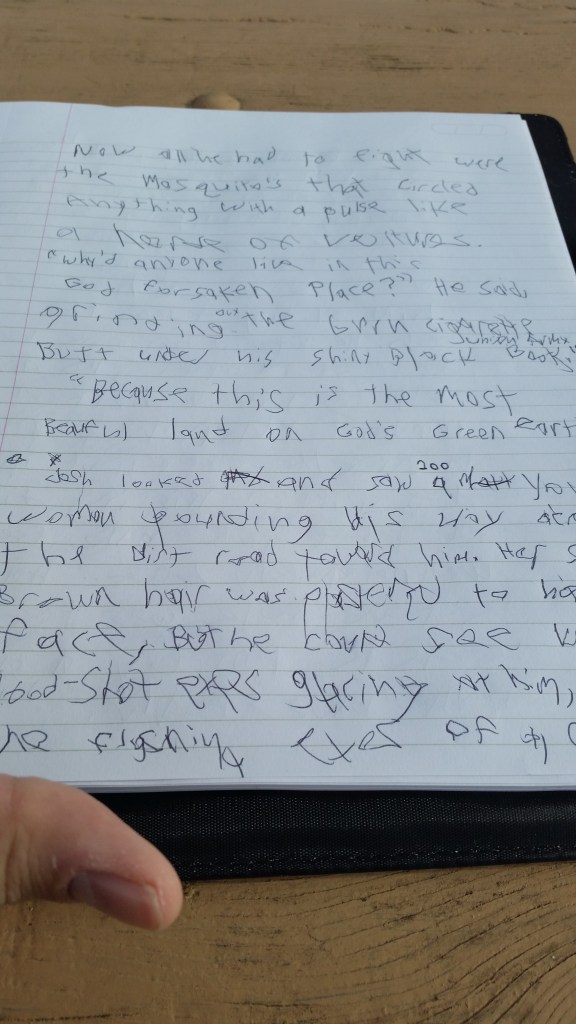 Now all he had to fight were
the Mosquito's that circled
Anything with a pulse like
a of Veltures.
"Why'd anyone live in this
God forsaken Place?" He said,
grinding out the cigarette
Butt under his shiny Black
"Because this is the most
land on God's Green
Josh looked and saw a
200
woman pounding his way
the dirt road toward him. Her
Brown hair was to
face, But he could see
-Shot eyes glaring at him,
eyes of a